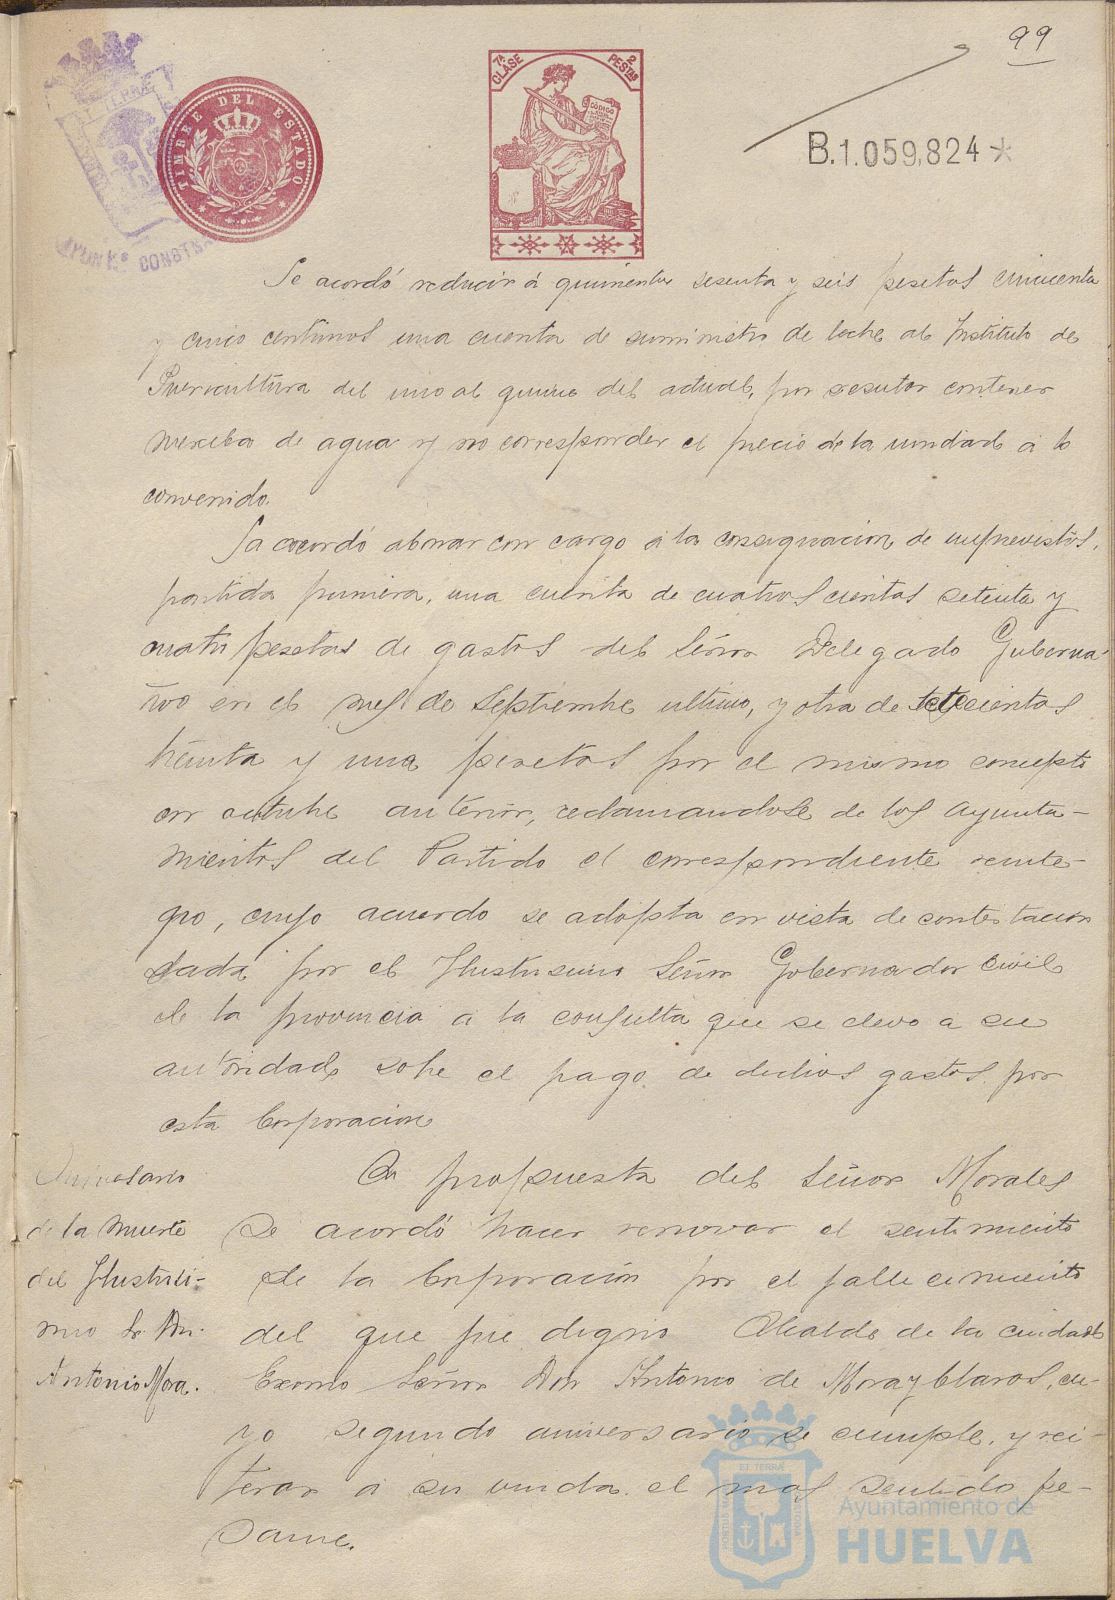 99
TIMBRE DEL ESTADO
7ª CLASE
2 PESTAS
CODIGO
B.1.059,824*
AYUN Kº CONST
Se acordó reducir á quinientas sesenta y seis pesetas cincuenta
y cinco centimos una cuenta de suministro de leche al Instituto de
Puericultura del uno al quince del actual, por resultar contener
mezcla de agua y no corresponder el precio de la unidad a lo
convenido.
Se acordó abonar con cargo a la consignacion de imprevistos,
partida primera, una cuenta de cuatroscientas setenta y
cuatro pesetas de gastos del Señor Delegado Guberna-
tivo en el mes de Septiembre ultimo, y otra de setecientas
treinta y una pesetas por el mismo concepto
en octubre anterior, reclamandose de los Ayunta-
mientos del Partido el correspondiente reinte-
gro, cuyo acuerdo se adopta en vista de contestacion
dada por el Ilustrisimo Señor Gobernador civil
de la provincia a la consulta que se elevo a su
autoridad sobre el pago de dichos gastos por
esta Corporacion
Aniversario
de la muerte
del Ilustrisi-
mo Sr. Dn.
Antonio Mora.
A propuesta del Señor Morales
se acordó hacer renovar el sentimiento
de la Corporación por el fallecimiento
del que fue digno Alcalde de la ciudad
Excmo Señor Don Antonio de Mora y Claros, cu-
yo segundo aniversario se cumple, y rei-
terar a su viuda el mas sentido pe-
same.
Ayuntamiento de
HUELVA